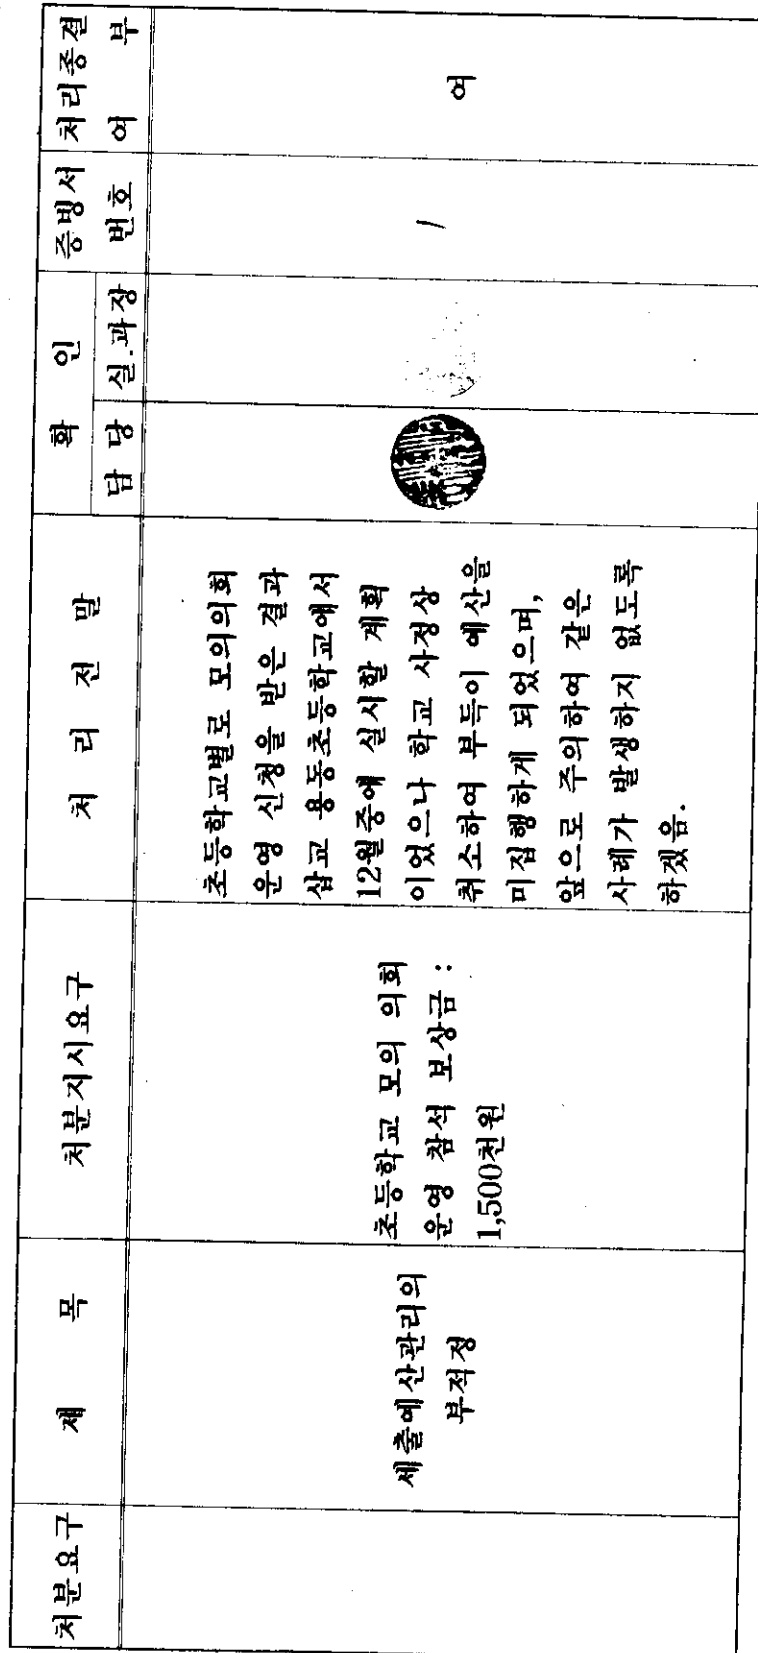 처분요구
제 목
처분지시요구
처 리 전 말
확 인
담 당
실.과장
증빙서
번호
처리종결
여 부
세출예산관리의
부적정
초등학교 모의 의회
운영 참석 보상금 :
1,500천원
초등학교별로 모의의회
운영 신청을 받은 결과
삽교 용동초등학교에서
12월중에 실시할 계획
이었으나 학교 사정상
취소하여 부득이 예산을
미집행하게 되었으며,
앞으로 주의하여 같은
사례가 발생하지 없도록
하겠음.
1
여